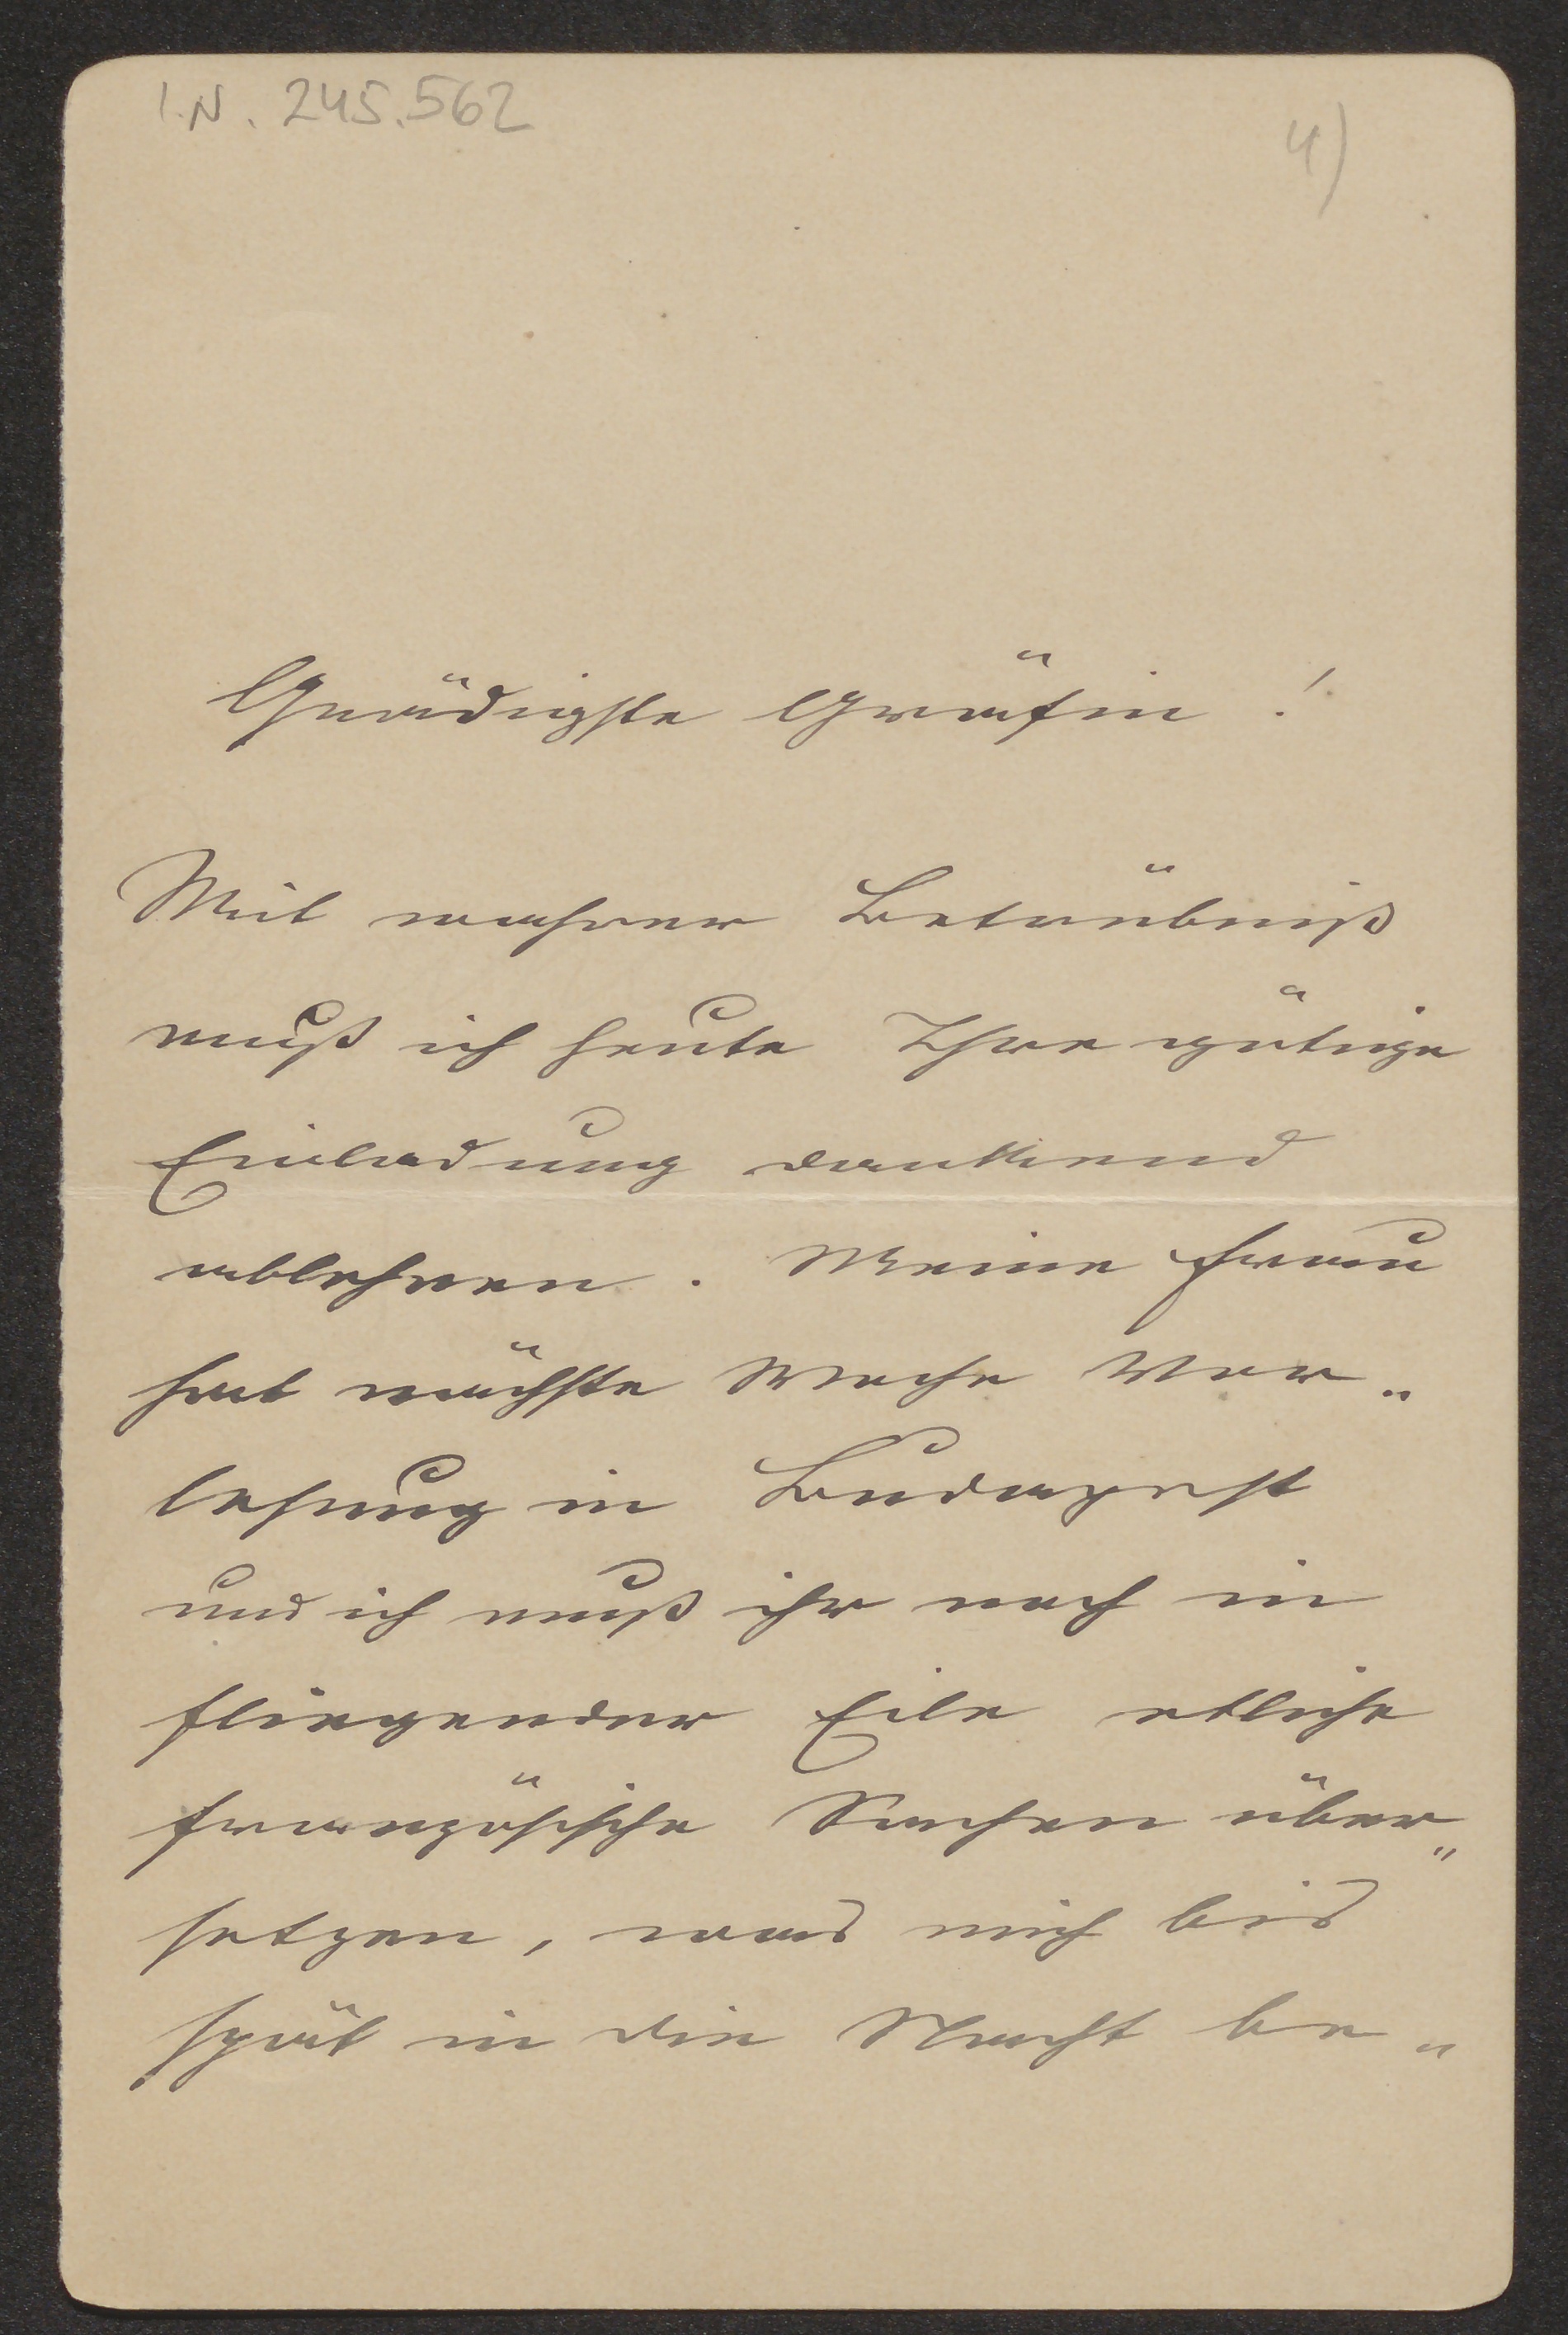 I.N. 245.562
4)
Gnädigste Gräfin!
Mit wahrer Betrübniß
muß ich heute Ihre gütige
Einladung dankend
ablehnen. Meine Frau
hat nächste Woche Vor„
lesung in Budapest
und ich muß ihr noch in
fliegender Eile etliche
französische Sachen über„
setzen, was mich bis
spät in die Nacht be„